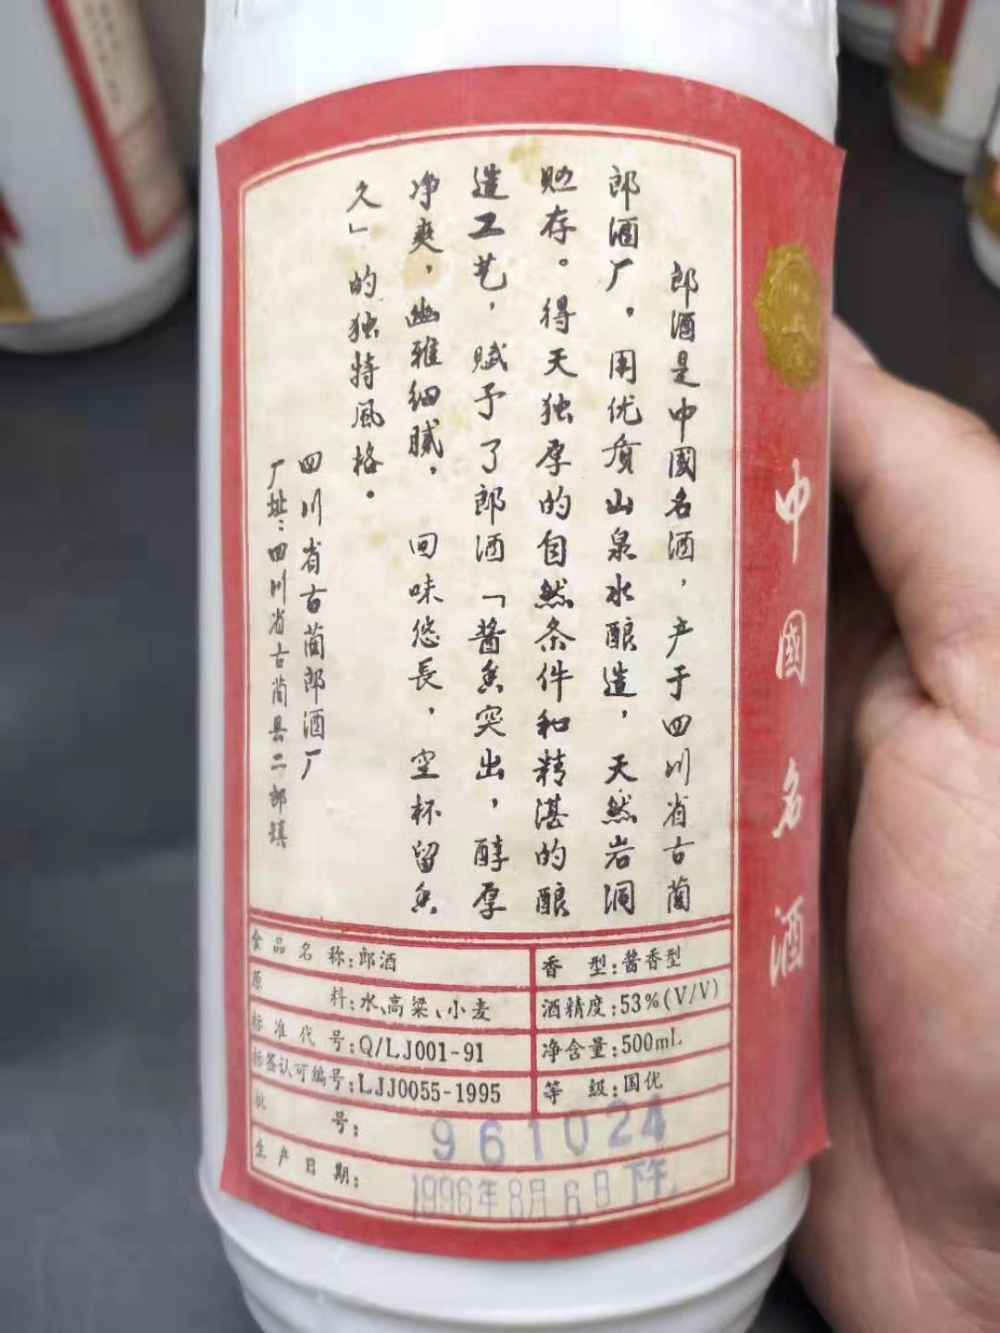 中國名酒
郎酒是中國名酒，产于四川省古蔺
郎酒厂，用优质山泉水酿造，天然岩洞
贮存。得天独厚的自然条件和精湛的酿
造工艺，赋予了郎酒「酱香突出，醇厚
净爽，幽雅细腻，回味悠長，空杯留香
久」的独特風格。
四川省古蔺郎酒厂
厂址：四川省古蔺县二郎镇
食品名称：郎酒
香型：酱香型
原料：水、高粱、小麦
酒精度：53%(V/V)
标准代号：Q/LJ001-91
净含量：500mL
标签认可编号：LJJ0055-1995
等级：国优
批号：961024
生产日期：1996年8月6日下午